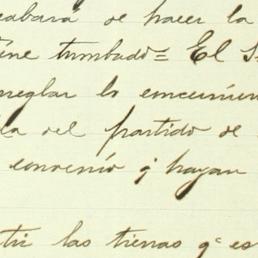 acabará de hacer la
tiene tumbado = El S
arreglar lo concerni
la del partido de
convenio q hayan
tir las tierras qe es